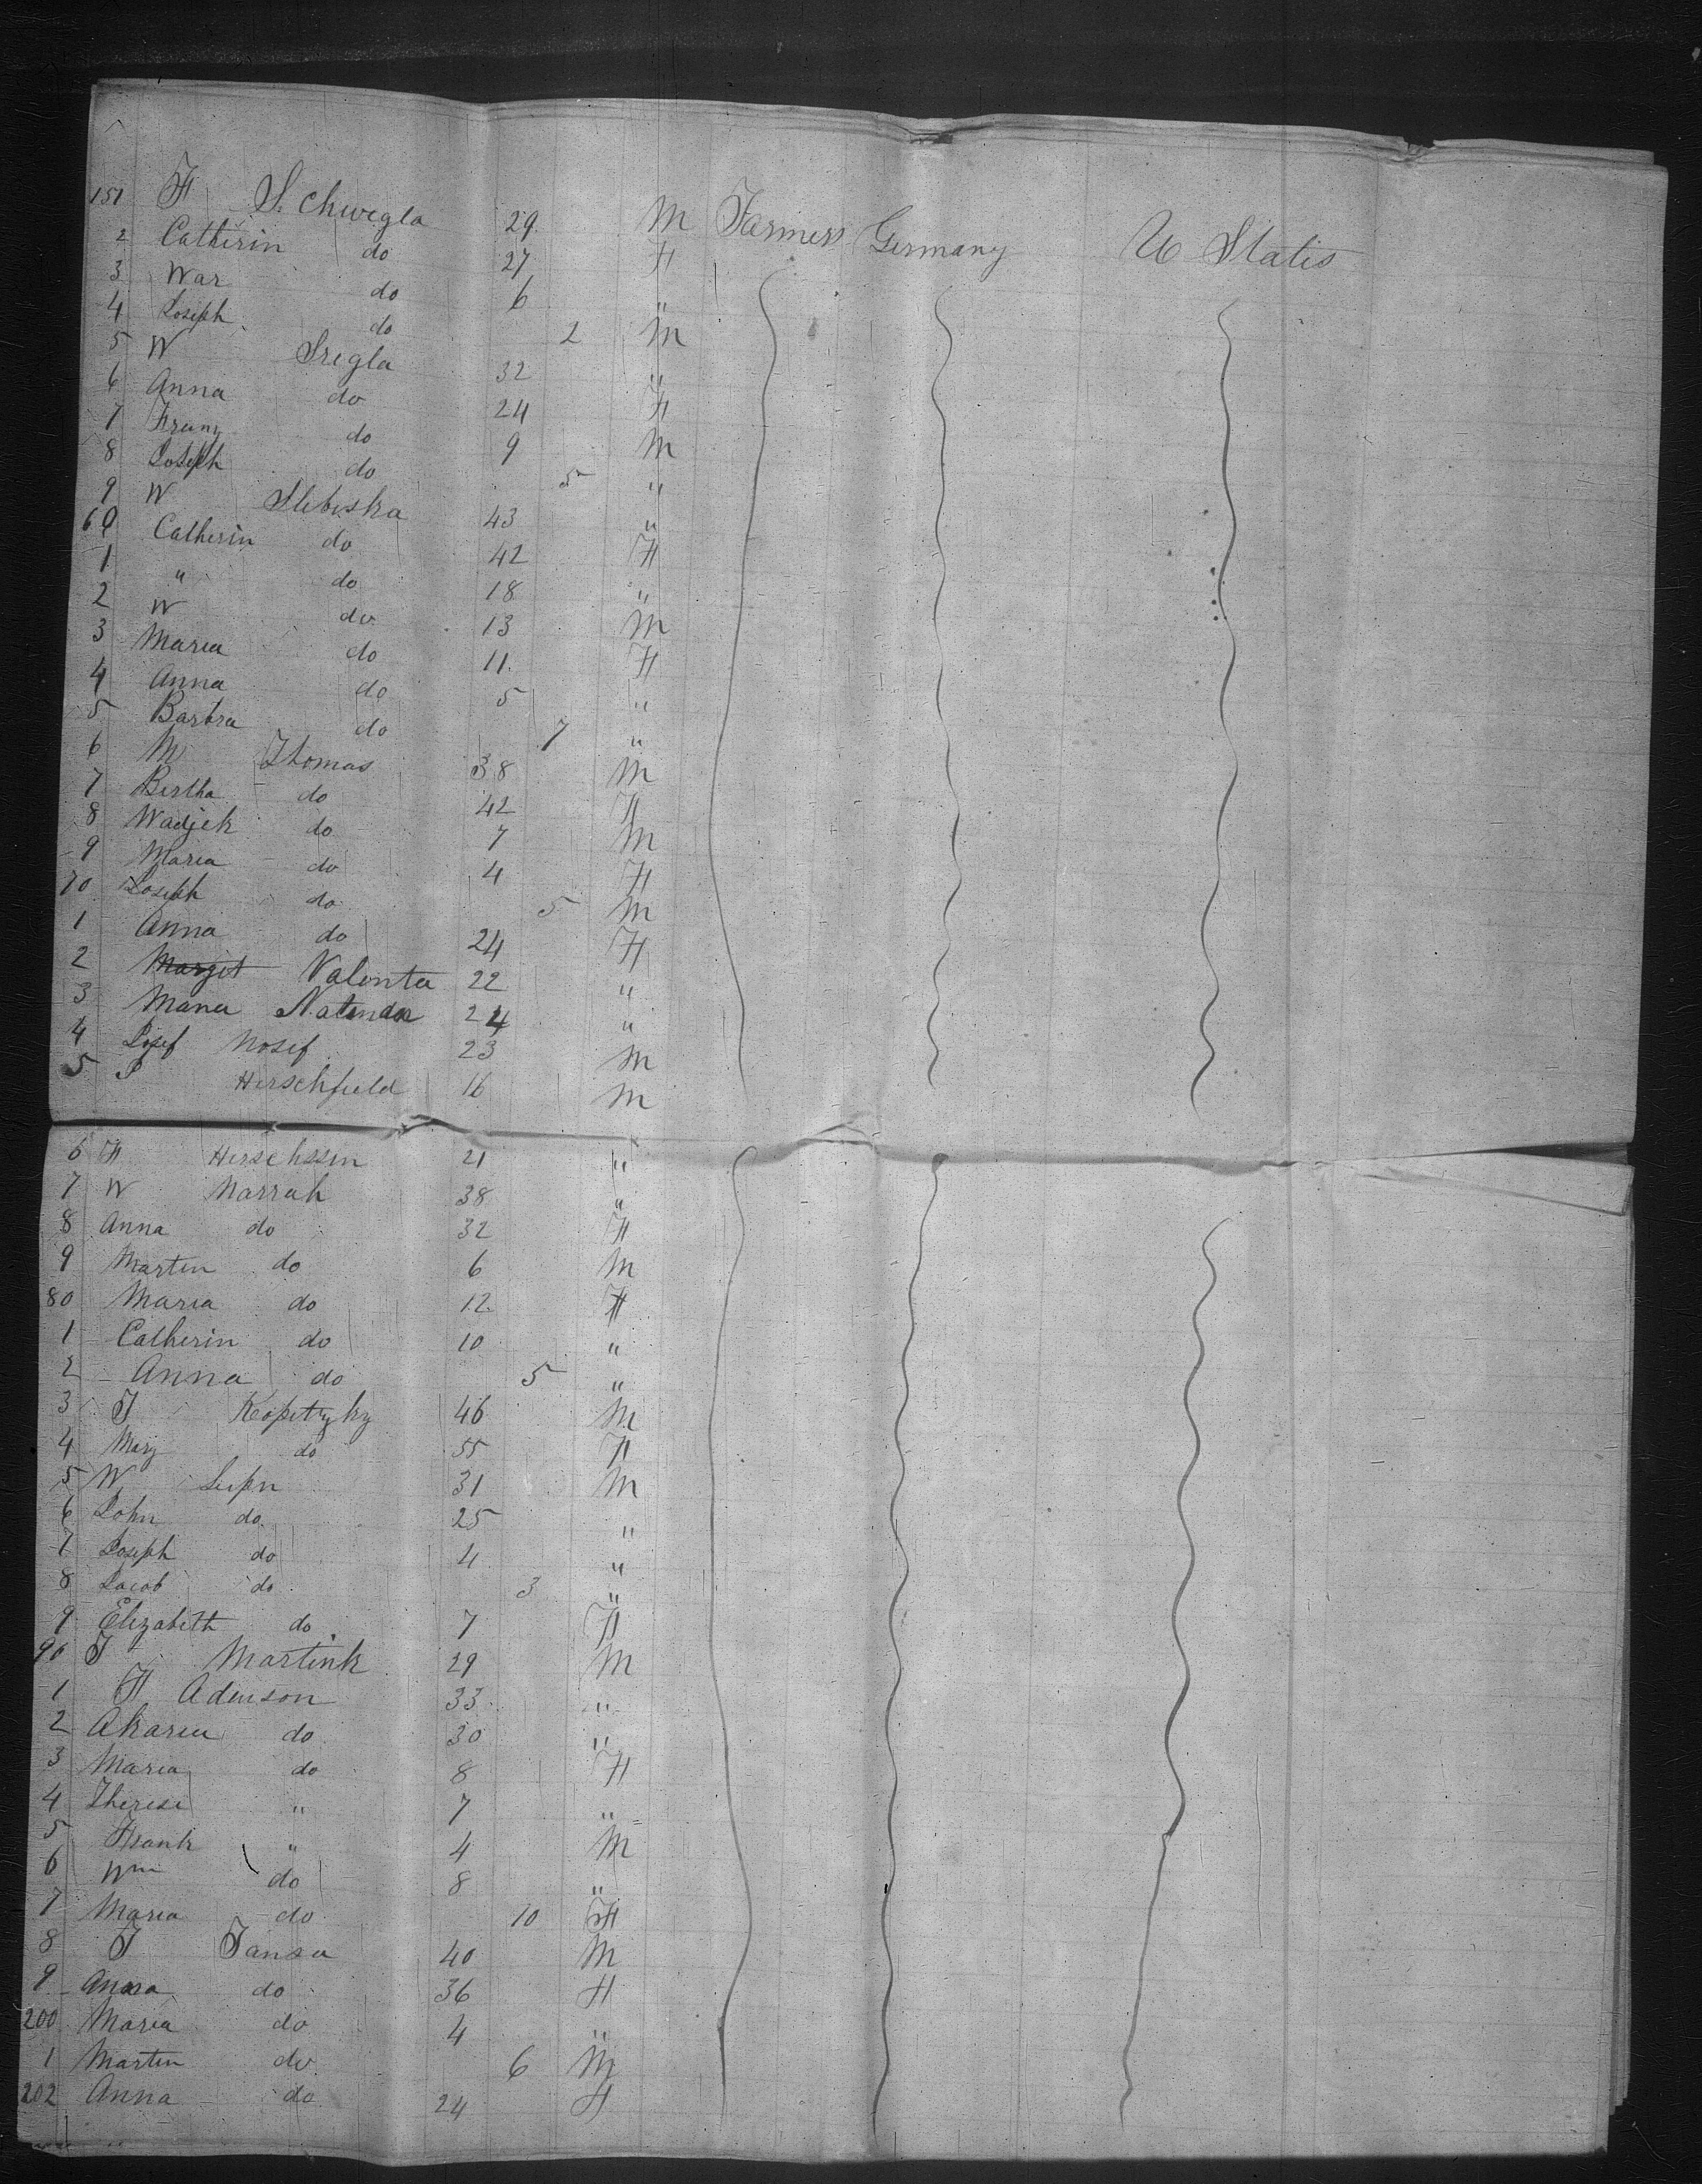 151 F Schwegla 29 M Farmers Germany U Statis
2 Catherin do 27 F
3 War do 6 "
4 Joseph do 2 M
5 W Sregla 32 "
6 Anna do 24 F
7 Franz do 9 M
8 Joseph do 5 "
9 W Slebiska 43 "
60 Catherin do 42 F
1 " do 18 "
2 W do 13 M
3 Maria do 11 F
4 Anna do 5 "
5 Barbra do 7 "
6 M Thomas 38 M
7 Bertha do 42 F
8 Wadjek do 7 M
9 Maria do 4 F
70 Joseph do 5 M
1 Anna do 24 F
2 Margit Valenta 22 "
3 Maria 24 "
4 Josef Nosef 23 M
5 Herschfield 16 M
6 F Herschssen 21 "
7 W Marrah 38 "
8 Anna do 32 F
9 Martin do 6 M
80 Maria do 12 F
1 Catherin do 10 "
2 Anna do 5 "
3 J Kopetzky 46 M
4 Mary do 55 F
5 W 31 M
6 John do 25 "
7 Joseph do 4 "
8 Jacob do 3 "
9 Elizabeth do 7 F
90 J Martink 29 M
1 F Adenson 33 "
2 do 30 "
3 Maria do 8 F
4 Therese " 7 "
5 Frank " 4 M
6 Wm do 8 "
7 Maria do 10 F
8 J Jansa 40 M
9 Anna do 36 F
200 Maria do 4 "
1 Martin do 6 M
202 Anna do 24 F